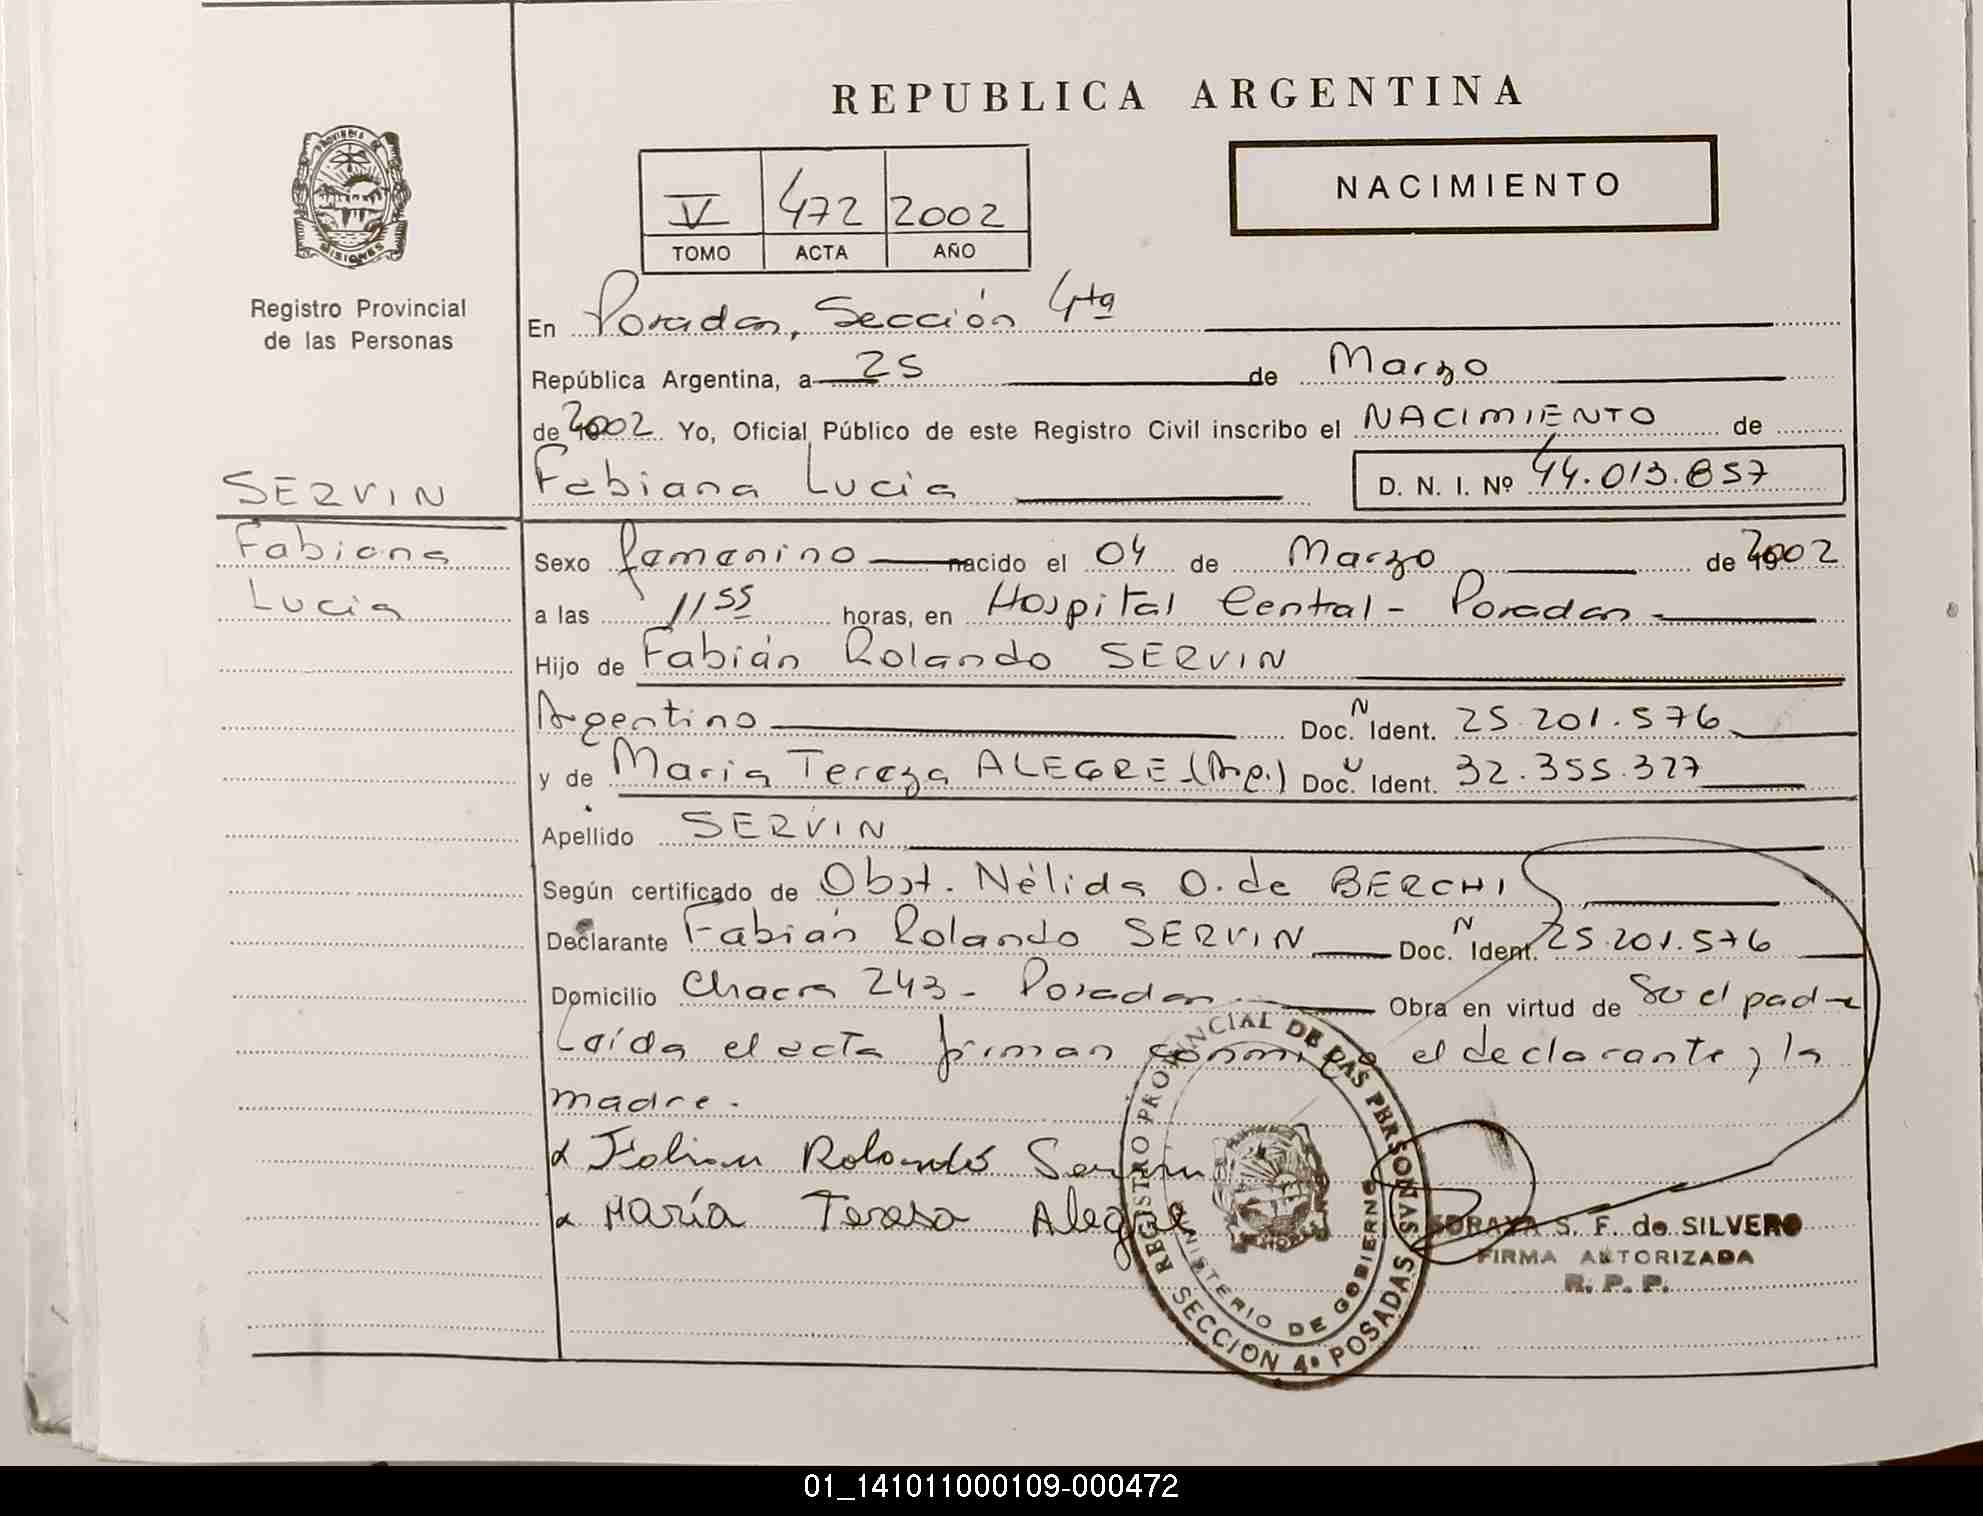 REPUBLICA ARGENTINA
PROVINCIA DE
MISIONES
Registro Provincial
de las Personas
V 472 2002
TOMO ACTA AÑO
NACIMIENTO
En Posadas, Sección 4ta
República Argentina, a 25 de Marzo
de 2002 Yo, Oficial Público de este Registro Civil inscribo el NACIMIENTO de
SERVIN
Fabiana Lucia D. N. I. Nº 44.013.857
Fabiana
Lucia
Sexo femenino nacido el 04 de Marzo de 2002
a las 11 55 horas, en Hospital Central - Posadas
Hijo de Fabián Rolando SERVIN
Argentino Doc. N Ident. 25.201.576
y de Maria Tereza ALEGRE (Arg.) Doc. U Ident. 32.355.327
Apellido SERVIN
Según certificado de Obst. Nélida O. de BERCHI
Declarante Fabián Rolando SERVIN Doc. N Ident. 25.201.576
Domicilio Chacra 243 - Posadas Obra en virtud de Ser el padre
Leída el acta firman conmigo el declarante y la
madre.
Fabian Rolando Servin
María Teresa Alegre
REGISTRO PROVINCIAL DE LAS PERSONAS
MINISTERIO DE GOBIERNO
SECCION 4ª POSADAS
SORAYA S. F. de SILVERO
FIRMA AUTORIZADA
R. P. P.
01_141011000109-000472